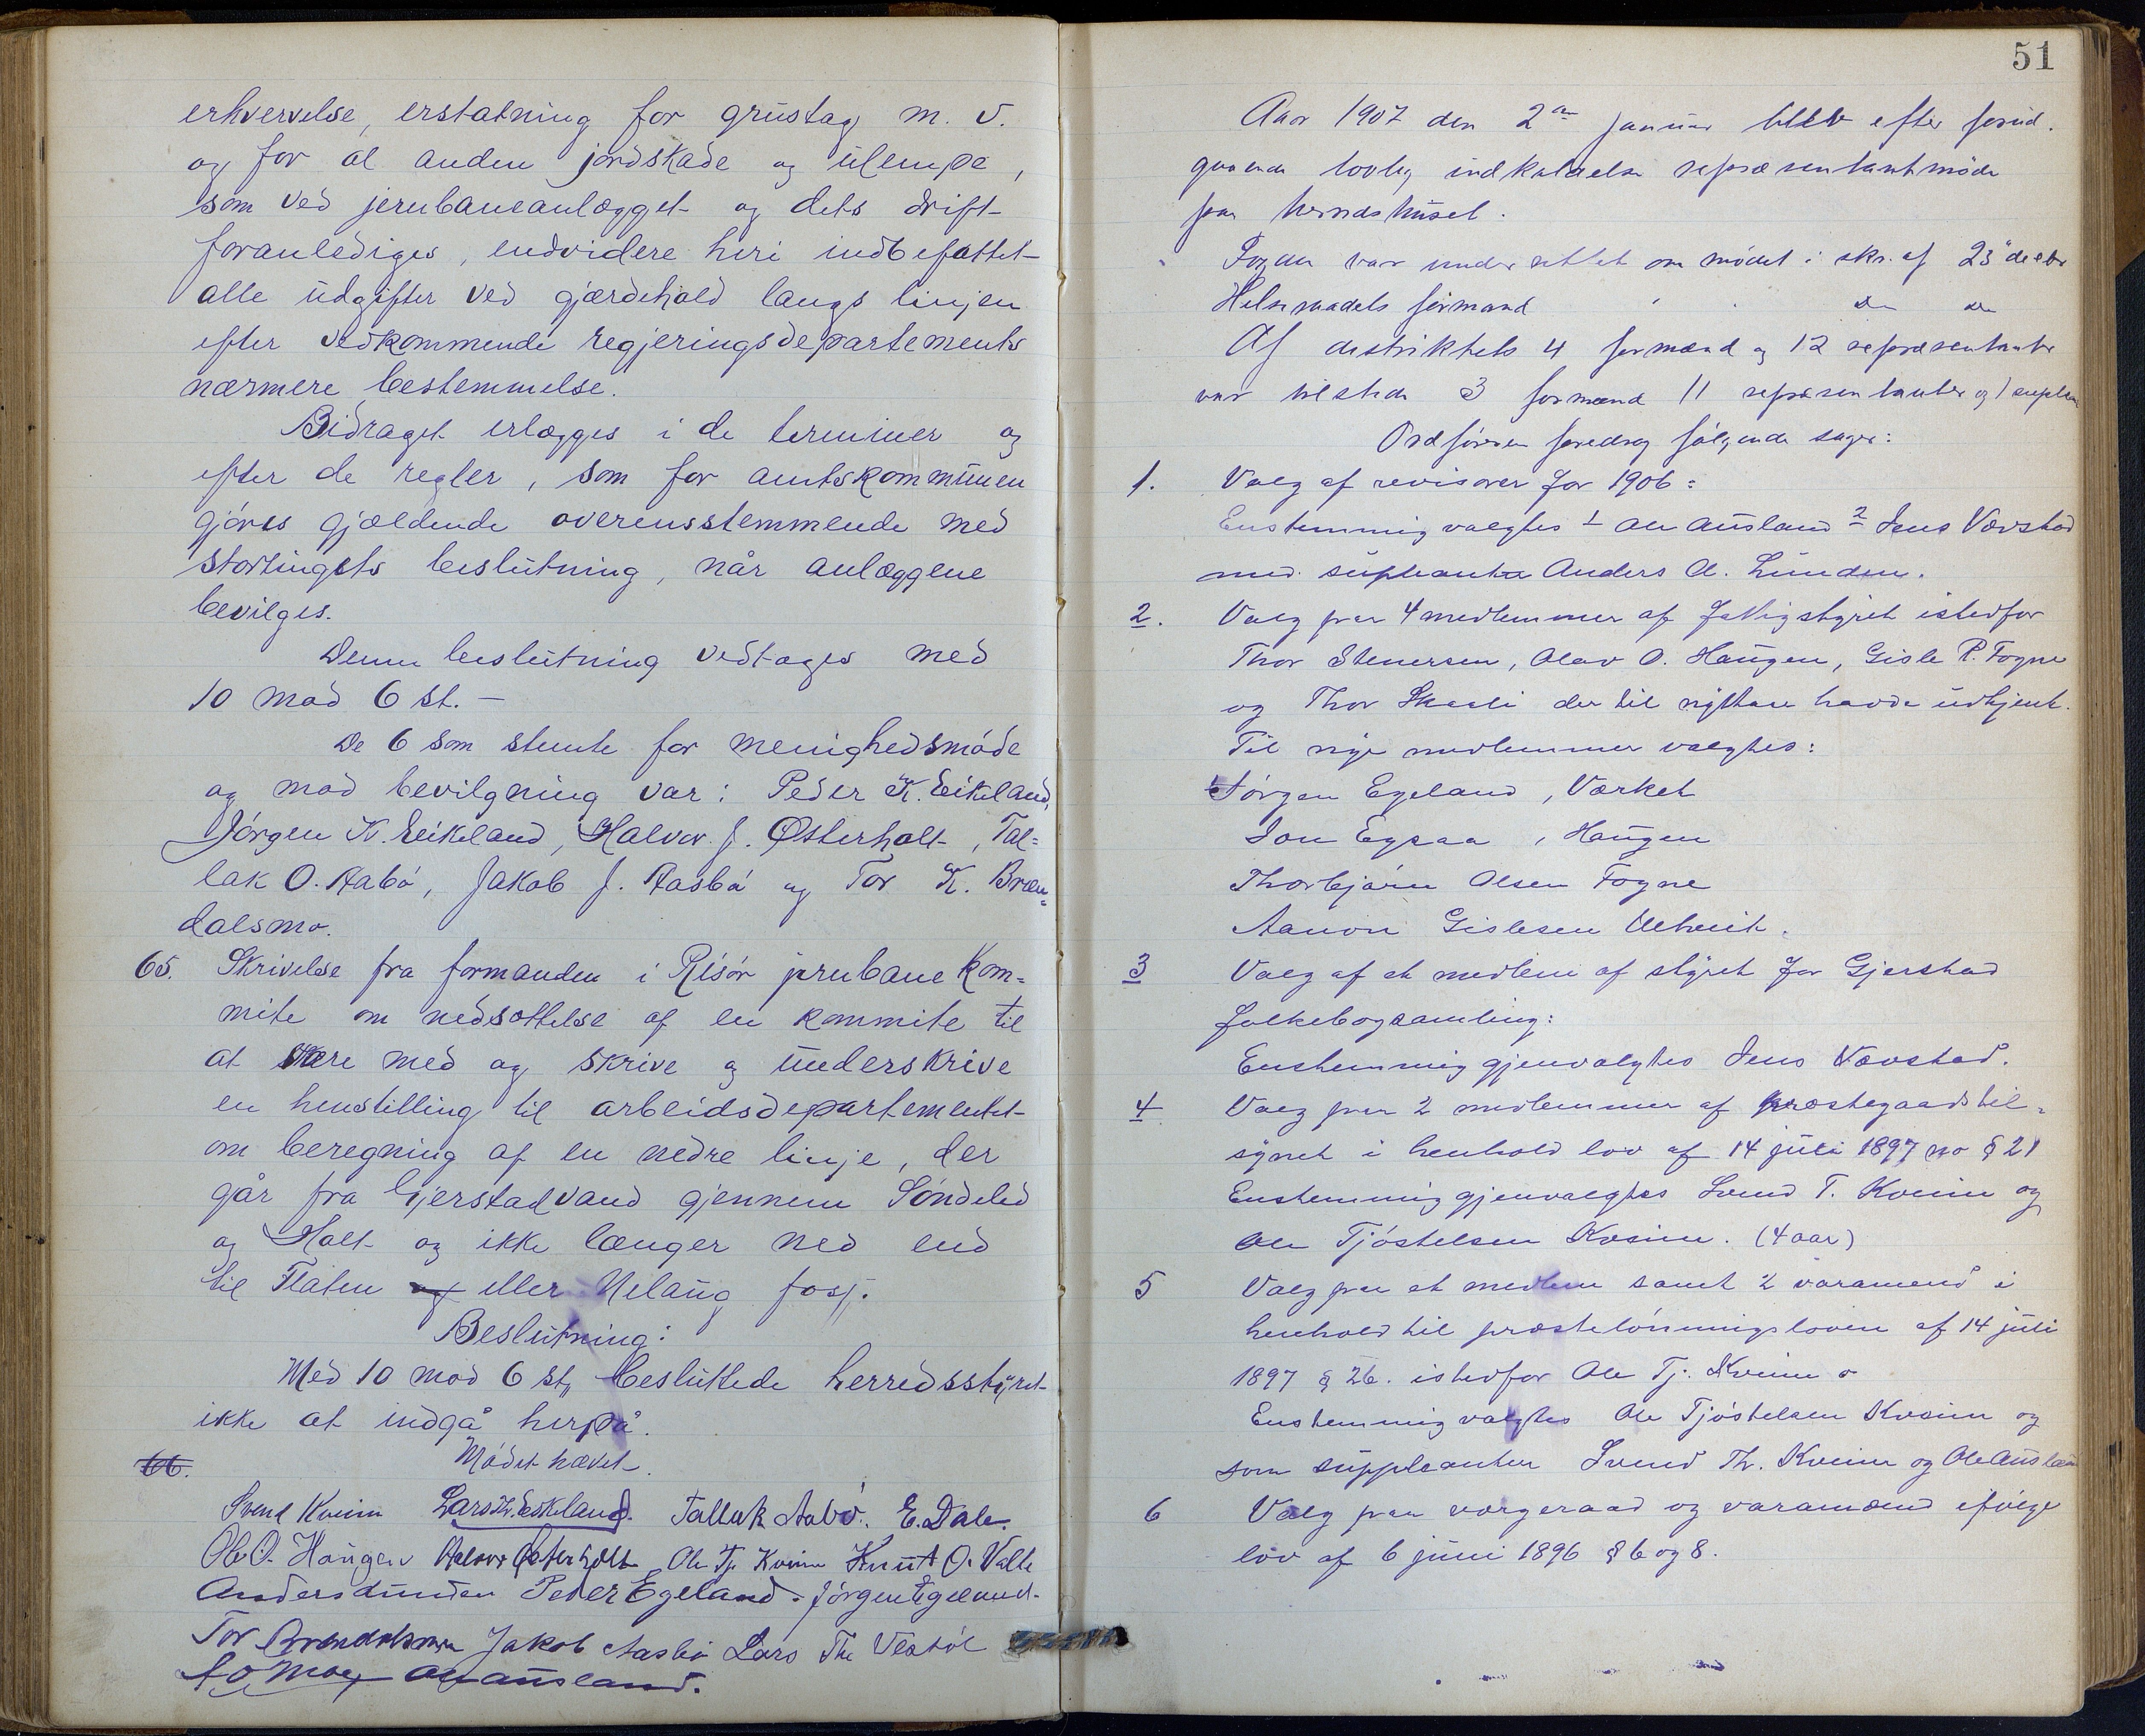 erhvervelse, erstatning for grustag m. v.
og for al anden jordskade og ulempe,
som ved jernbaneanlægget og dets drift
foranlediges, endvidere heri indbefattet
alle udgifter ved gjærdehold langs linjen
efter vedkommende regjeringsdepartements
nærmere bestemmelse.
Bidraget erlægges i de terminer og
efter de regler, som for amtskommunen
gjøres gjældende overensstemmende med
stortingets beslutning, når anlæggene
bevilges.
Denne beslutning vedtages med
10 mod 6 st. —
De 6 som stemte for menighedsmøde
og mod bevilgning var: Peder K. Eikeland,
Jørgen K. Eikeland, Halvor J. Østerholt, Tal=
lak O. Aabø, Jakob J. Aasbø og Tor K. Bræn=
dalsmo.
65. Skrivelse fra formanden i Risør jernbane kom=
mite om nedsættelse af en kommite til
at være med og skrive og underskrive
en henstilling til arbeidsdepartementet
om beregning af en nedre linje, der
går fra Gjerstadvand gjennem Søndeled
og Holt og ikke længer ned end
til Flaten eller Nelaug fosf.
Beslutning:
Med 10 mod 6 st. besluttede herredsstyret
ikke at indgå herpå.
66. Mødet hævet.
Svend Kveim Lars Th. Eskeland. Tallak Aabø. E. Dale.
Ole O. Haugen Halvor Østerholt Ole Tj. Kveim Knut O. Valle
Anders Lunden Peder Egeland - Jørgen Egeland.
Tor Brændalsmo Jakob Aasbø Lars Th. Vestøl
A. O. Moe Ole Ausland.
51
Aar 1907 den 2den Januar blev efter forud.
gaaende lovlig indkaldelse repræsentantmøde
paa herredshuset.
Fogden var underrettet om mødet i skr. af 23de dcbr
Helseraadets formand " " do do
Af distriktets 4 formænd og 12 repræsentanter
var tilstede 3 formænd 11 repræsentanter og 1 suplean
Ordføreren foredrog følgende sager:
1. Valg af revisorer for 1906:
Enstemmig valgtes 1 Ole Ausland 2 Jens Vævstad
med supleanter Anders A. Lunden.
2. Valg paa 4 medlemmer af Fattigstyret istedfor
Thor Stenersen, Olav O. Haugen, Gisle P. Fogne
og Thor Skaali der til nyttaar havde udtjent.
Til nye medlemmer valgtes:
Jørgen Egeland, Værket
Jon Egsaa, Haugen
Thorbjørn Olsen Fogne
Aanon Gislesen
3 Valg af et medlem af styret for Gjerstad
folkebogsamling:
Enstemmig gjenvalgtes Jens Vævstad.
4 Valg paa 2 medlemmer af præstegaardstil=
synet i henhold lov af 14 juli 1897 no § 21
Enstemmig gjenvalgtes Svend T. Kveim og
Ole Tjøstelsen Kveim. (4 aar)
5 Valg paa et medlem samt 2 varamend i
henhold til præstelønningsloven af 14 juli
1897 § 26. istedfor Ole Tj. Kveim
Enstemmig valgtes Ole Tjøstelsen Kveim og
som suppleanter Svend Th. Kveim og Ole Ausland
6 Valg paa vergeraad og varamænd ifølge
lov af 6 juni 1896 § 6 og 8.